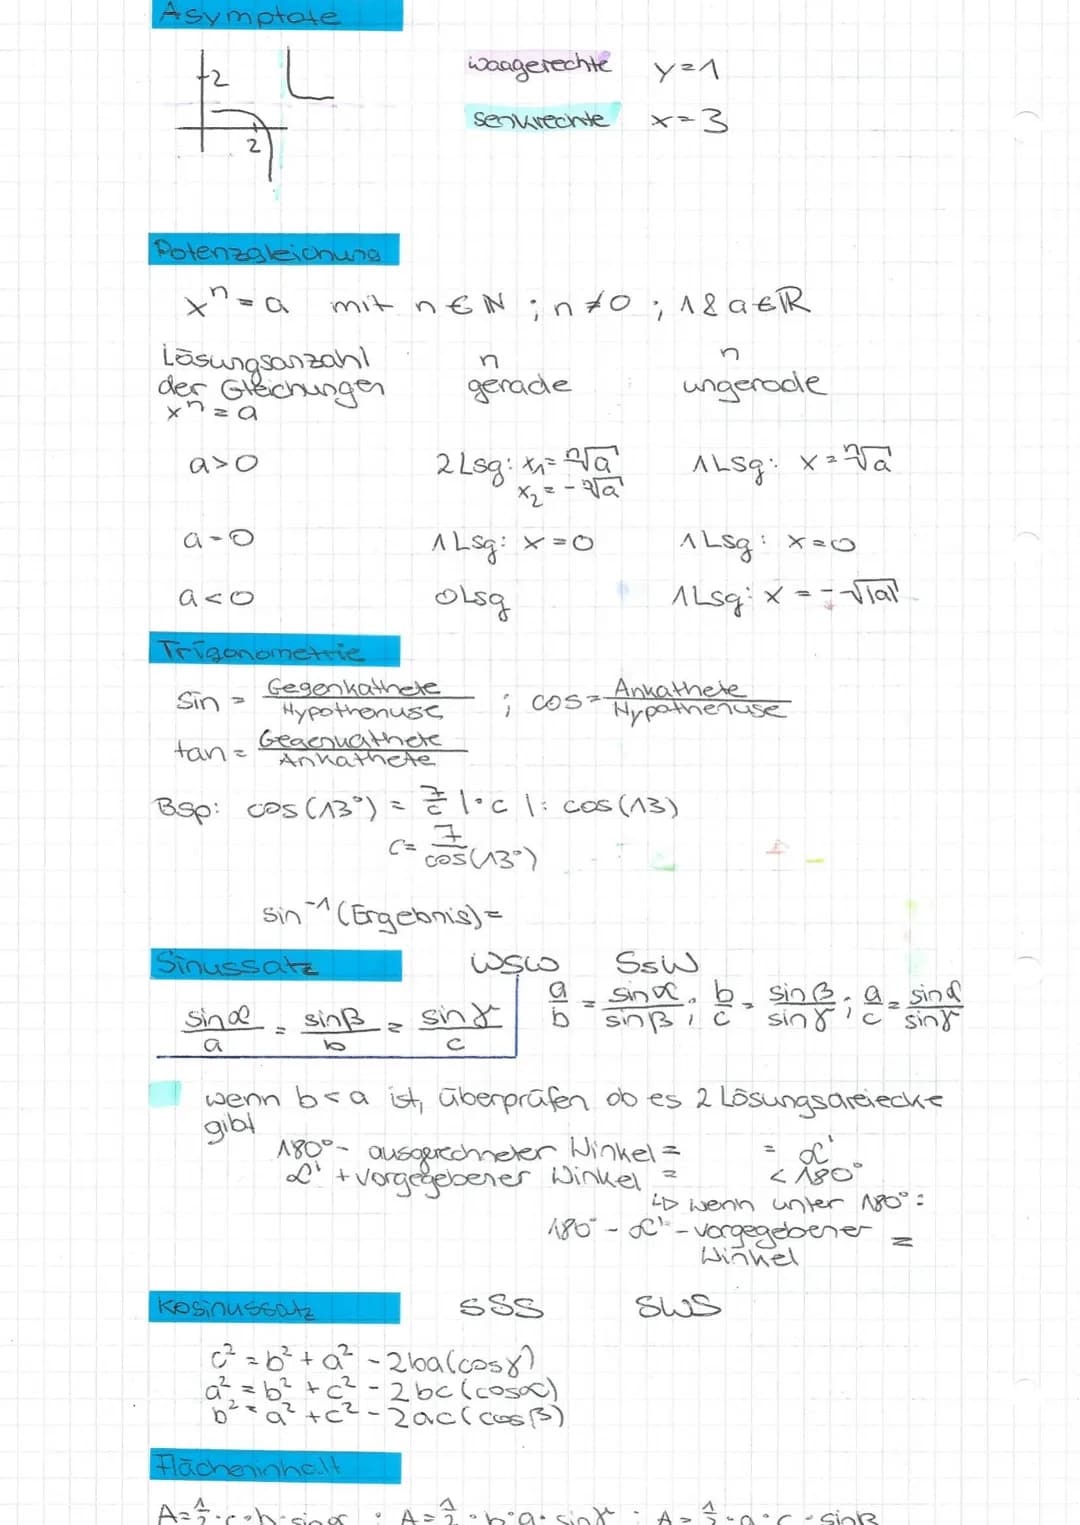 Asymptote
2
2
waagerechte y=1
senkrechte x=3
Potenzgleichung
xⁿ = a mit n ∈ ℕ ; n ≠ 0 ; 1 & a ∈ ℝ
Lösungsanzahl
der Gleichungen
xⁿ = a
n gerade
n ungerade
a>0 2 Lsg: x₁ = ⁿ√a 1 Lsg: x = ⁿ√a
x₂ = - ⁿ√a
a=0 1 Lsg: x = 0 1 Lsg: x = 0
a<0 0 Lsg 1 Lsg: x = -√|a|
Trigonometrie
Sin = Gegenkathete / Hypothenuse ; cos = Ankathete / Hypothenuse
tan = Gegenkathete / Ankathete
Bsp: cos(13°) = 7/c |·c |: cos(13)
c = 7 / cos(13°)
sin⁻¹(Ergebnis) =
Sinussatz WSW SsW
sin α / a = sin β / b = sin γ / c
a/b = sin α / sin β ; b/c = sin β / sin γ ; a/c = sin α / sin γ
wenn b<a ist, überprüfen ob es 2 Lösungsdreiecke
gibt
180° - ausgerechneter Winkel = = α'
α' + vorgegebener Winkel = < 180°
↳ wenn unter 180°:
180° - α' - vorgegebener =
Winkel
Kosinussatz SSS SWS
c² = b² + a² - 2ba(cos γ)
a² = b² + c² - 2bc(cos α)
b² = a² + c² - 2ac(cos β)
Flächeninhalt
A = 1/2 · c · b · sin α ; A = 1/2 · b · a · sin γ ; A = 1/2 · a · c · sin β